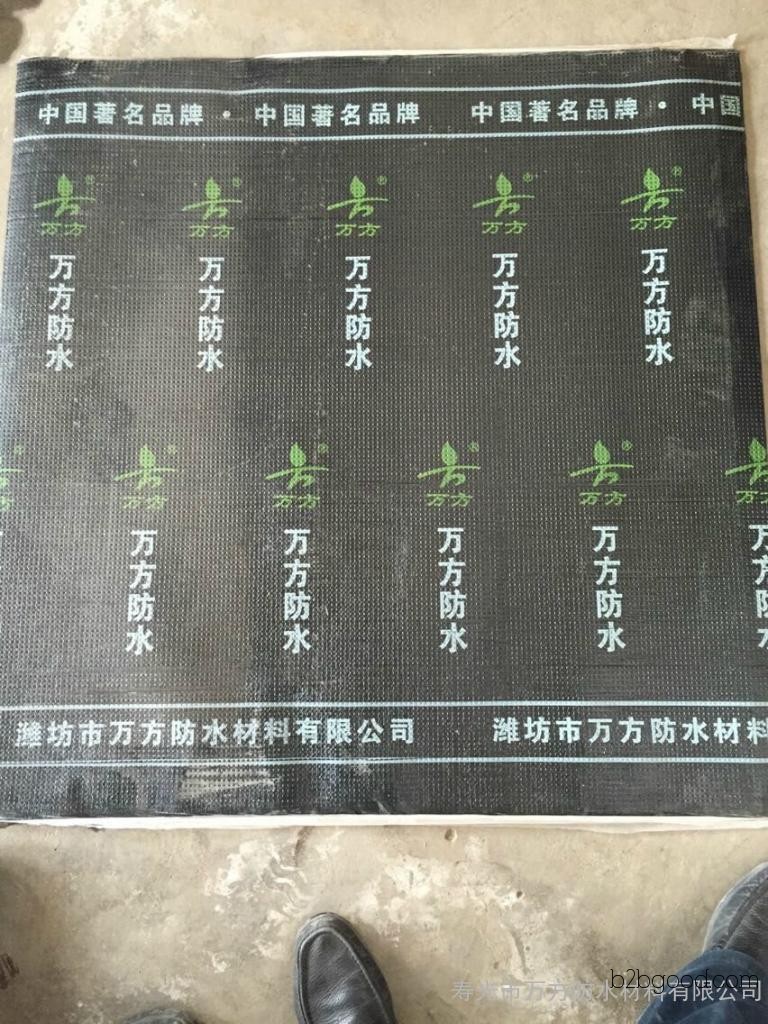 中国著名品牌 · 中国著名品牌 中国著名品牌 · 中国
® ® ® ® ®
万方 万方 万方 万方 万方
万方防水 万方防水 万方防水 万方防水 万方防水
® ® ® ®
万方 万方 万方 万方 万
万方防水 万方防水 万方防水 万方防水
潍坊市万方防水材料有限公司 潍坊市万方防水材料
b2bgood.com
寿光市万方防水材料有限公司